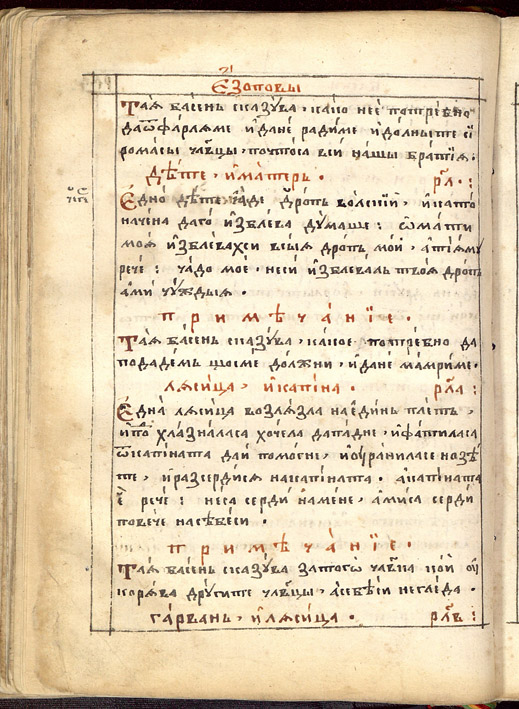 Єзоповы
Тая басень сказꙋва, како нее потребно
даѿфарляме и дане радиме и долныте сі
ромасы чл҃вцы, почтоса вси нашы братїѧ.
Дѣте, и матерь. рл҃:
Едно дѣте ꙗде дробъ волскїй, и като
начена даго изблева дꙋмаше: ѽ мати
моѧ изблевахси всыѧ дробъ мой, а тїѧмꙋ
рече: чадо мое, неси изблевалъ твоѧ дробъ
ами чꙋждыѧ.
Примѣчанїе.
Тая басень сказꙋва, какое потребно да
подадемъ щосме должни, и дане мамриме.
Лѧсица, и капина. рл҃а:
Една лѧсица возлѧзла на единъ плетъ,
и хлазналаса хочела да падне, и фатиласа
ѿ капината дай помогне, и оуранилaсе нозѣ
те, и разсердисѧ на капината. а капината
рече: неса серди на мене, амиса серди
повече на себеси.
Примѣчанїе.
Тая басень сказꙋва за тогѡ чл҃вка кой оу
корѧва дрꙋгите чл҃вцы, а себеси негледа.
Гарванъ, и лѧсица. рл҃в: